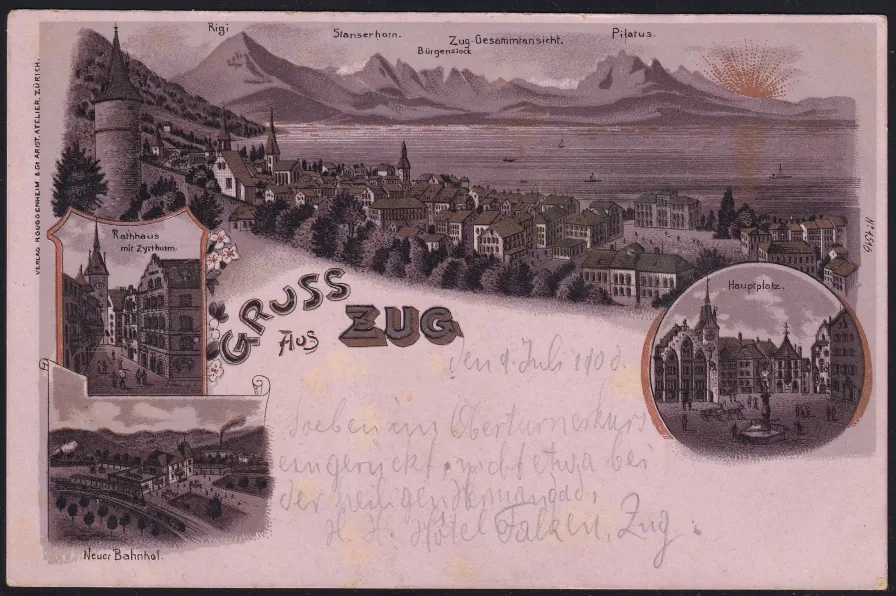 Rigi
Stanserhorn.
Bürgenstock
Zug-Gesammtansicht.
Pilatus.
VERLAG H. GUGGENHEIM & Co ARIST. ATELIER, ZÜRICH.
Rathhaus
mit Zytthurm.
Nº 1519
Hauptplatz.
GRUSS
AUS
ZUG
den 9. Juli 190
Soeben im Oberturnerkurs
eingerückt, nicht etwa bei
der heiligen Hermandad,
H. H. Hôtel Falken, Zug.
Neuer Bahnhof.